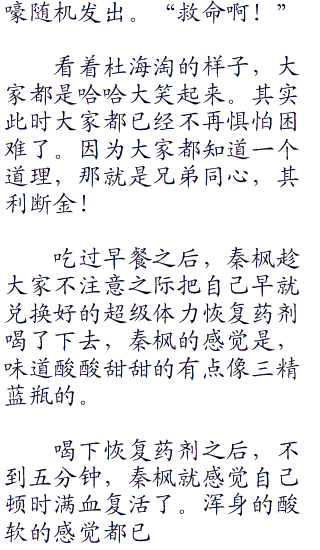 嚎随机发出。“救命啊！”
看着杜海淘的样子，大
家都是哈哈大笑起来。其实
此时大家都已经不再惧怕困
难了。因为大家都知道一个
道理，那就是兄弟同心，其
利断金！
吃过早餐之后，秦枫趁
大家不注意之际把自己早就
兑换好的超级体力恢复药剂
喝了下去，秦枫的感觉是，
味道酸酸甜甜的有点像三精
蓝瓶的。
喝下恢复药剂之后，不
到五分钟，秦枫就感觉自己
顿时满血复活了。浑身的酸
软的感觉都已